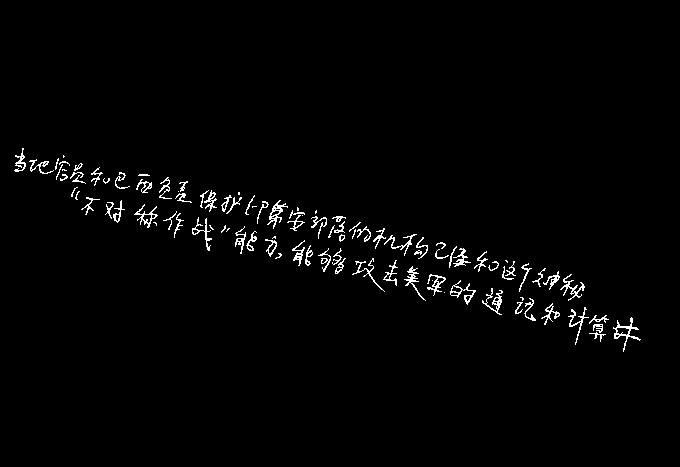 当地官员和巴西负责保护印第安部落的机构已经和这个神秘
“不对称作战”能力,能够攻击美军的通讯和计算机